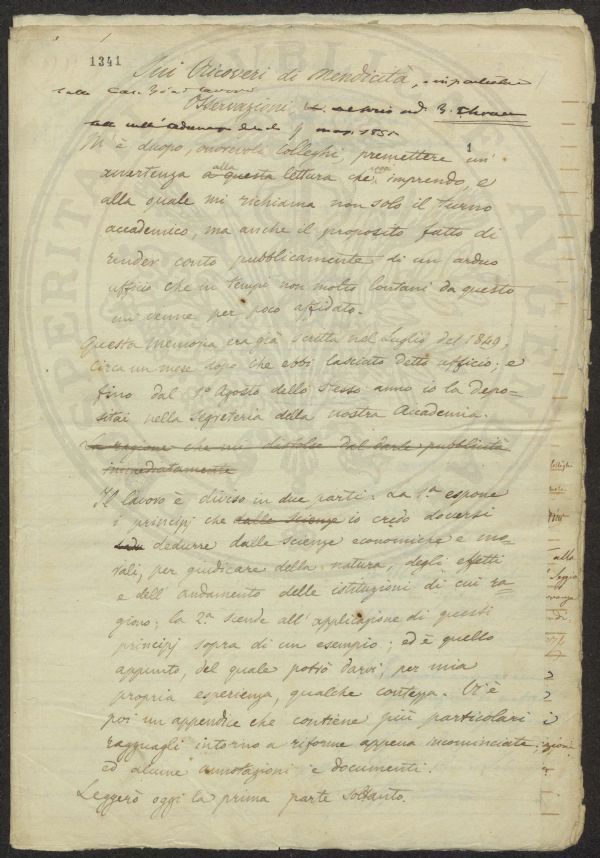 1341
Sui Ricoveri di Mendicità,
Osservazioni
M'è d'uopo, onorevoli Colleghi, premettere un'
avvertenza alla lettura che imprendo, e
alla quale mi richiama non solo il turno
accademico, ma anche il proposito fatto di
render conto pubblicamente di un arduo
ufficio che in tempi non molto lontani da questo
mi venne per poco affidato.
Questa Memoria era già scritta nel Luglio del 1849,
circa un mese dopo che ebbi lasciato detto ufficio; e
fino dal 1º Agosto dello stesso anno io la depo-
sitai nella Segreteria della nostra Accademia.
La ragione che mi distolse dal darle pubblicità
immediatamente
Il lavoro è diviso in due parti. La 1.ª espone
i principj che dalle scienze io credo doversi
dedurre dalle scienze economiche e mo-
rali, per giudicare della natura, degli effetti
e dell'andamento delle istituzioni di cui ra-
giono; la 2.ª scende all'applicazione di questi
principj sopra di un esempio; ed è quello
appunto, del quale potrò darvi, per mia
propria esperienza, qualche contezza. Vi è
poi un'appendice che contiene più particolari
ragguagli intorno a riforme appena incominciate,
ed alcune annotazioni e documenti.
Leggerò oggi la prima parte soltanto.